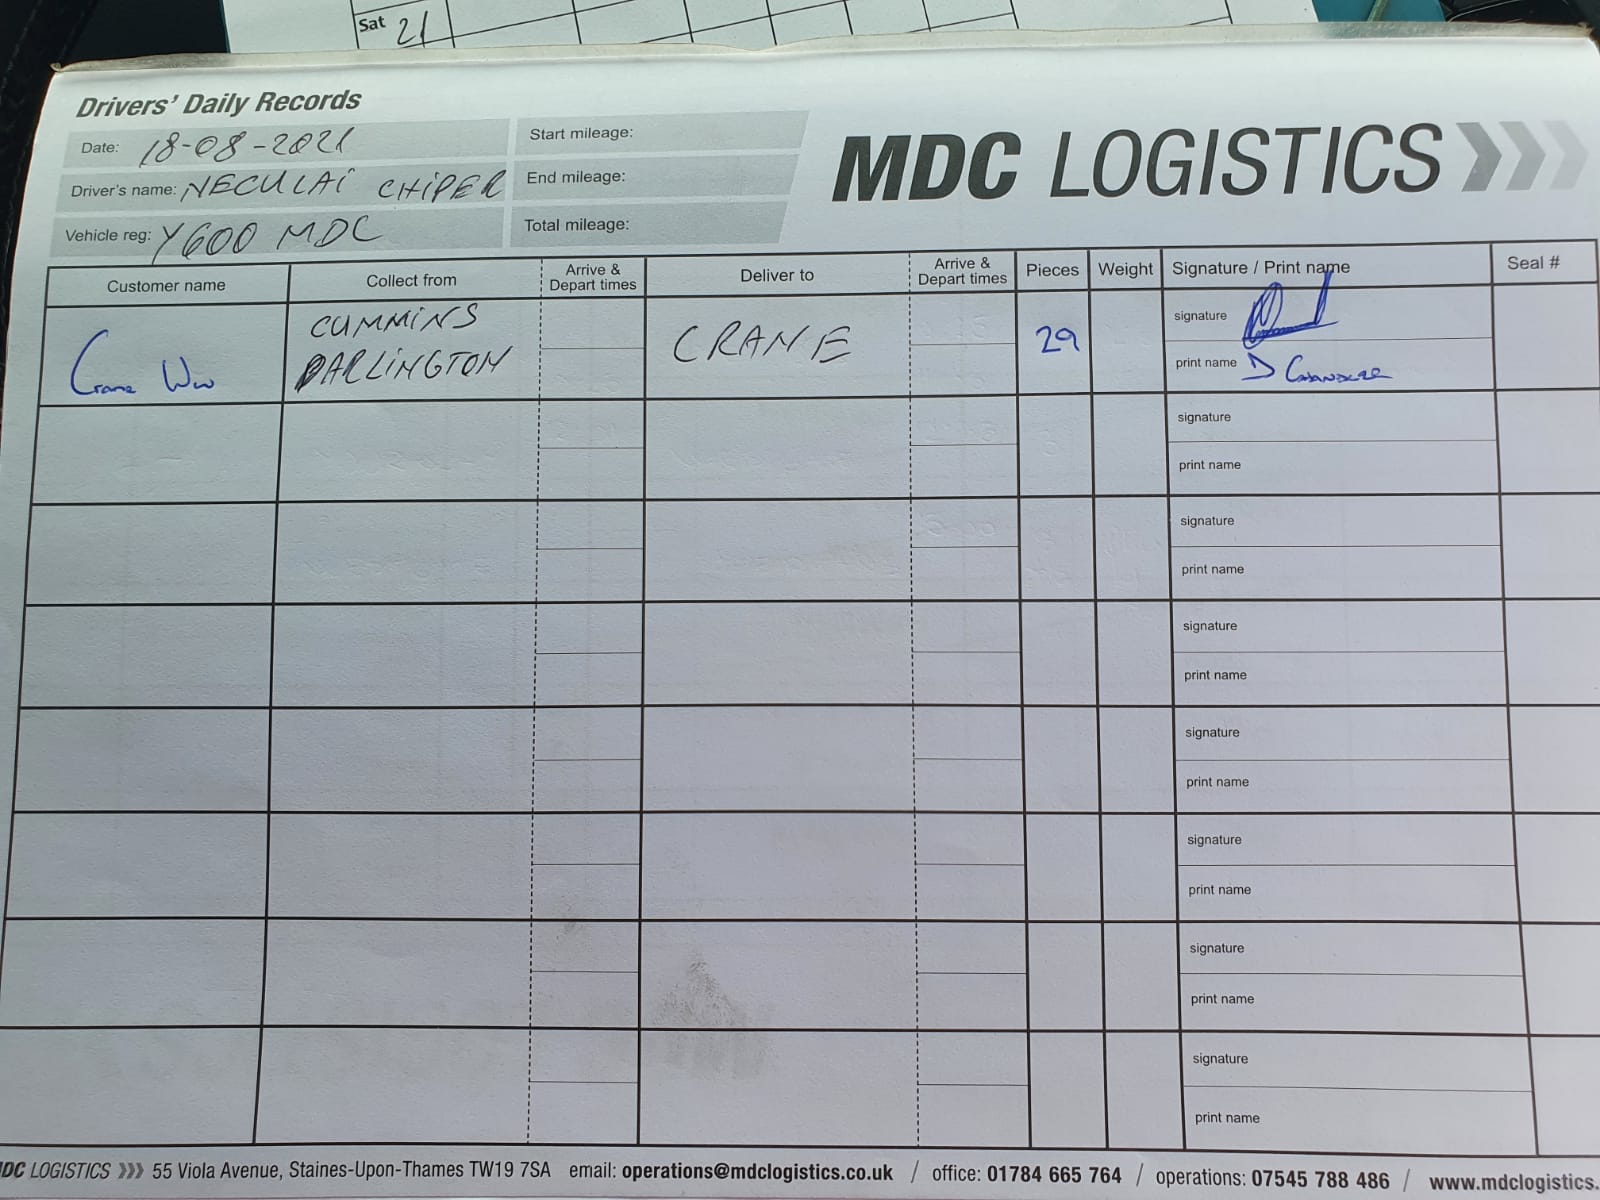 Sat 21
Drivers' Daily Records
Date: 18-08-2021
Start mileage:
MDC LOGISTICS
Driver's name: NECULAI CHIPER
End mileage:
Vehicle reg: Y600 MDC
Total mileage:
Customer name Collect from Arrive & Depart times Deliver to Arrive & Depart times Pieces Weight Signature / Print name Seal #
Crane Ww
CUMMINS
DARLINGTON
CRANE
29
signature
print name D
signature
print name
signature
print name
signature
print name
signature
print name
signature
print name
signature
print name
signature
print name
MDC LOGISTICS 55 Viola Avenue, Staines-Upon-Thames TW19 7SA email: operations@mdclogistics.co.uk / office: 01784 665 764 / operations: 07545 788 486 / www.mdclogistics.